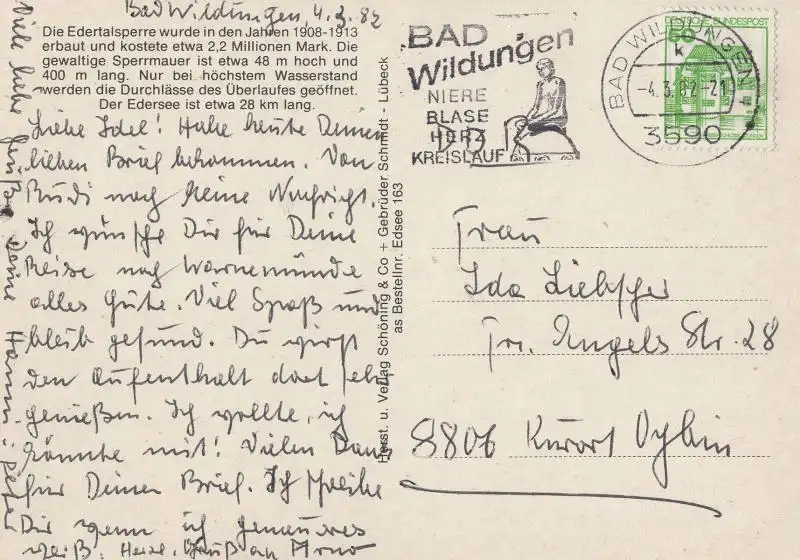 Bad Wildungen, 4.3.82
Die Edertalsperre wurde in den Jahren 1908-1913
erbaut und kostete etwa 2,2 Millionen Mark. Die
gewaltige Sperrmauer ist etwa 48 m hoch und
400 m lang. Nur bei höchstem Wasserstand
werden die Durchlässe des Überlaufes geöffnet.
Der Edersee ist etwa 28 km lang.
Liebe Idel! Habe heute Deinen
lieben Brief bekommen. Von
Rudi noch keine Nachricht.
Ich wünsche Dir für Deine
Reise nach Warnemünde
alles Gute. Viel Spaß und
bleib gesund. Du wirst
den Aufenthalt dort sehr
genießen. Ich wollte, ich
könnte mit! Vielen Dank
für Deinen Brief. Ich schreibe
Dir wenn ich genaueres
weiß. Herzl. Gruß an Arno
Viele liebe Grüße Deine Hanni
Herst. u. Verlag Schöning & Co + Gebrüder Schmidt - Lübeck
as Bestellnr. Edsee 163
BAD
Wildungen
NIERE
BLASE
HERZ
KREISLAUF
BAD WILDUNGEN 1
k
-4.3.82-21
3590
DEUTSCHE BUNDESPOST
50
Frau
Ida Liebscher
Fr. Engels Str. 28
8806 Kurort Oybin